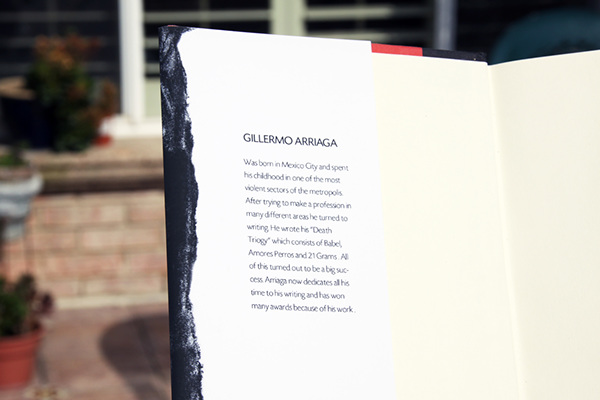 GILLERMO ARRIAGA
Was born in Mexico City and spent
his childhood in one of the most
violent sectors of the metropolis.
After trying to make a profession in
many different areas he turned to
writing. He wrote his "Death
Triogy" which consists of Babel,
Amores Perros and 21 Grams . All
of this turned out to be a big suc-
cess. Arriaga now dedicates all his
time to his writing and has won
many awards because of his work.